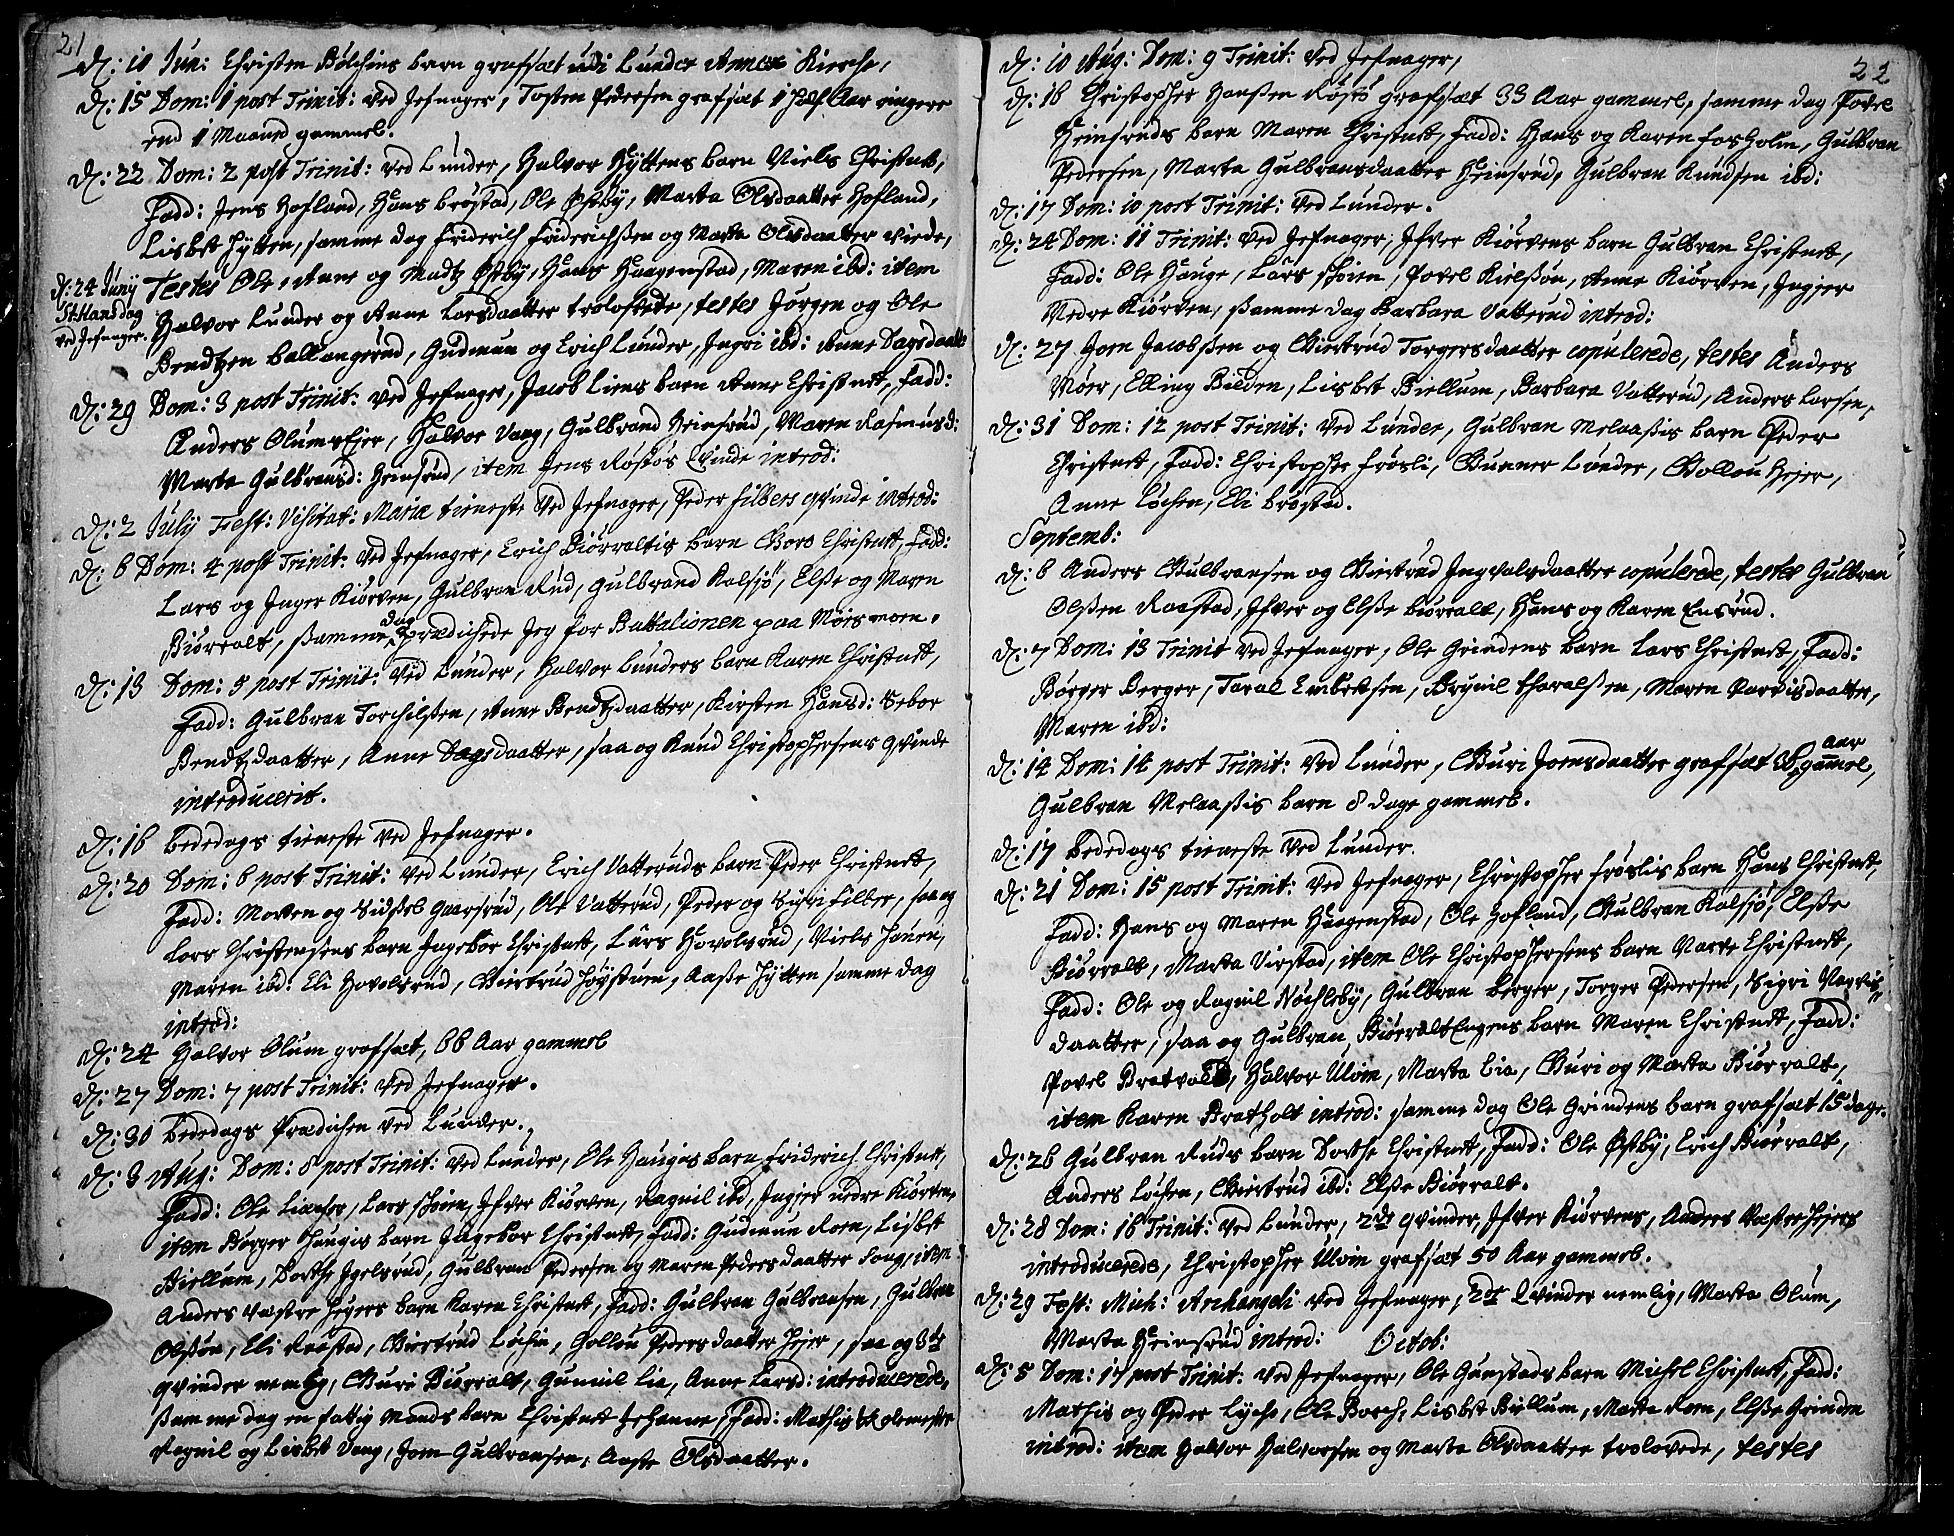 21
D: 10 Jun: Christen Bølchins barn grafsæt udi Lunder Annex Kierche,
D: 15 Dom: 1 post Trinit: ved Jefnager, Tosten Pedersen grafsæt 1 half Aar ringere
end 1 Maaned gammel.
D: 22 Dom: 2 post Trinit: ved Lunder, Halvor Hyttens barn Niels Christnet,
Fadd: Jens Hofland, Hans brøstad, Ole Østby, Marta Olsdaatter Hofland,
Lisbet Hytten, samme dag Friderich Friderichssen og Marta Olsdaatter viede,
Testes Ole, Anne og Madtz Østby, Hans Haagenstad, Maren ibd: item
D: 24 Junij
St Hans dag
ved Jefnager.
Halvor Lunder og Anne Larsdaatter trolofvede, testes Jørgen og Ole
Bendtzen ballangrud, Gudmun og Erich Lunder, Ingri ibd: Anne Dagsdaatter
D: 29 Dom: 3 post Trinit: ved Jefnager, Jacob Liens barn Anne Christnet, Fadd:
Anders OlumsEjer, Halvor Vaag, Gulbrand Heinsrud, Maren Rasmusd:
Marta Gulbransd: Heinsrud, item Jens Røssøs Qvinde introd:
D: 2 July Fest: Visitat: Mariæ tieneste ved Jefnager, Peder Filbers qvinde introd:
D: 6 Dom: 4 post Trinit: ved Jefnager, Erich Biørraltis barn Goro Christnet, Fadd:
Lars og Inger Kiørven, Gulbran Rud, Gulbrand Kalsjø, Elsse og Maren
Biørralt, ssamme dag prædichede Jeg for Battalionen paa Mørismoen.
D: 13 Dom: 5 post Trinit: ved Lunder, Halvor Lunders barn Karen Christnet,
Fadd: Gulbran Torchilssen, Anne Bendtzdaatter, Kirsten Hansd: Sebor
Bendtzdaatter, Anne Dagsdaatter, saa og Knud Christophersens qvinde
introducerit.
D: 16 bededags tieneste ved Jefnager.
D: 20 Dom: 6 post Trinit: ved Lunder, Erich Vatteruds barn Peder Christnet,
Fadd: Morten og Sidssel Gaarsrud, Ole Vatterud, Peder og Sigri Filber, saa og
Lars Christensens barn Ingebor Christnet, Lars Hovelsrud, Niels Hauen,
Maren ibd: Eli Hovelsrud, Giertrud Høystuen, Aasse Hytten samme dag
introd:
D: 24 Halvor Olum grafsæt, 66 Aar gammel
D: 27 Dom: 7 post Trinit: ved Jefnager.
D: 30 bededags Prædichen ved Lunder.
D: 3 Aug: Dom: 8 post Trinit: ved Lunder, Ole Haugis barn Friderich Christnet,
Fadd: Ole Liaeser, Lars Moien, Ifver Kiørven, Ragnil ibd, Ingjer nedre Kiørven,
item Børger Haugis barn Ingebor Christnet, Fadd: Gudmun Roen, Lisbet
Biellum, Dorthe Igelsrud, Gulbran Pedersen og Maren Pedersdaatter Saug, item
Anders Væstre Hejers barn Karen Christnet, Fadd: Gulbran Gulbransen, Gulbran
Olssøn, Eli Raastad, Giertrud Løchen, Gollou Pedersdaatter Hejer, saa og 3de
qvinder nemlig, Guri Biørralt, Gunnil Lie, Anne Larsd: introducerede,
ssamme dag en fattig mands barn Christnet Johanne, Fadd: Mathis Skolemester
Ragnil og Lisbet Vaag, Joen Gulbransen, Aaste Olsdaatter.
22
D: 10 Aug: Dom: 9 Trinit: ved Jefnager,
D: 16 Christopher Hanssen Røssø grafsæt 33 Aar gammel, samme dag Povel
Heinsruds barn Maren Christnet, Fadd: Hans og Karen Fosholm, Gulbran
Pedersen, Marta Gulbransdaatter Heinsrud, Gulbran Knudsen ibd:
D: 17 Dom: 10 post Trinit: ved Lunder.
D: 24 Dom: 11 Trinit: ved Jefnager, Ifver Kiørvens barn Gulbran Christnet,
Fadd: Ole Hauge, Lars Moien, Povel Kielssøn, Anne Kiørven, Ingjer
Nedre Kiørven, ssamme dag Barbara Vatterud introd:
D: 27 Joen Jacobssen og Giertrud Torgersdaatter copulerede, testes Anders
Moer, Elling Bilden, Lisbet Biellum, Barbara Vatterud, Anders Larsen,
D: 31 Dom: 12 post Trinit: ved Lunder, Gulbran Melaassis barn Peder
Christnet, Fadd: Christopher Frøsli, Gunner Lunder, Gollou Hejer,
Anne Løchen, Eli brøstad.
Septemb:
D: 6 Anders Gulbransen og Giertrud Ingvalsdaatter copulerede, testes Gulbran
Olssen Raastad, Ifver og Elsse biørralt, Hans og Karen Ensrud.
D: 7 Dom: 13 Trinit ved Jefnager, Ole Grindens barn Lars Christnet, Fadd:
Børger Berger, Taral Embretsen, Brynil tharalssen, Maren Narvisdaatter,
Maren ibd:
D: 14 Dom: 14 post Trinit: ved Lunder, Guri Joensdaatter grafsæt 36 aar gammel,
Gulbran Melaassis barn 8 dage gammel.
D: 17 bededags tieneste ved Lunder.
D: 21 Dom: 15 post Trinit: ved Jefnager, Christopher Frøslis barn Hans Christnet,
Fadd: Hans og Maren Haagenstad, Ole Hofland, Gulbran Kalsjø, Elsse
Biørralt, Marta Virstad, item Ole Christophersens barn Marte Christnet,
Fadd: Ole og Ragnil Nøchleby, Gulbran berger, Torger Pedersen, Sigri Narvis-
daatter, saa og Gulbran BiørraltEngens barn Maren Christnet, Fadd:
Povel Bratvalt, Halvor Uloen, Marta Lia, Guri og Marta Biørralt,
item Karen Bratholt introd: samme dag Ole Grindens barn grafsæt 15 dage.
D: 26 Gulbran Ruds barn Dorthe Christnet, Fadd: Ole Østby, Erich Biørralt,
Anders Løchen, Giertrud ibd: Elsse Biørralt.
D: 28 Dom: 16 Trinit: ved Lunder, 2de qvinder, Ifver Kiørvens, Anders Væstre Hejers
introducerede, Christopher Uloen grafsæt 50 Aar gammel.
D: 29 Fest: Mich: Archangeli ved Jefnager, 2de Qvinder nemlig, Marta Olum,
Marta Heinsrud introd: Octob:
D: 5 Dom: 17 post Trinit: ved Jefnager, Ole Gunstads barn Michel Christnet, Fadd:
Mathis og Peder Lyche, Ole Borch, Lisbet Biellum, Marta Roen, Elsse Grinden
introd: item Halvor Halvorsen og Marta Olsdaatter trolovede, testes